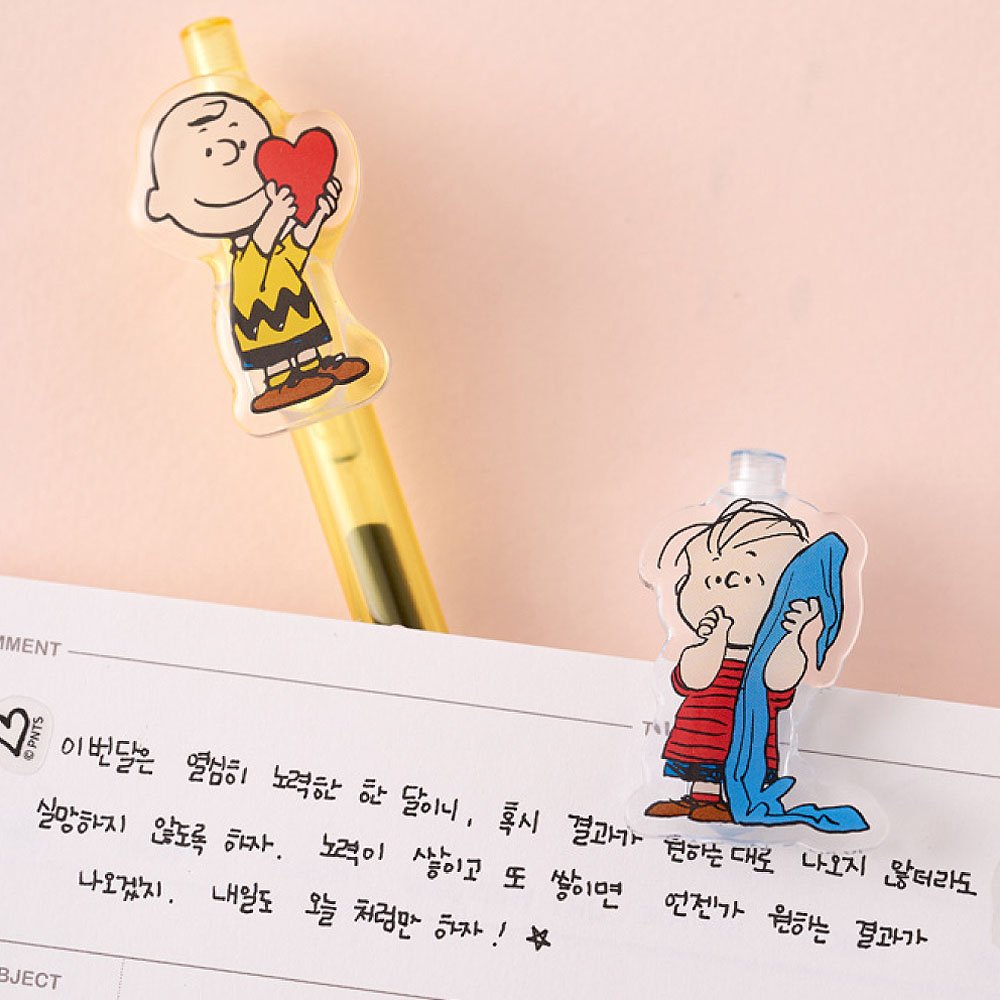 MMENT
© PNTS
이번달은 열심히 노력한 한 달이니, 혹시 결과가 원하는대로 나오지 않더라도
실망하지 않도록 하자. 노력이 쌓이고 또 쌓이면 언젠가 원하는 결과가
나오겠지. 내일도 오늘 처럼만 하자!
BJECT